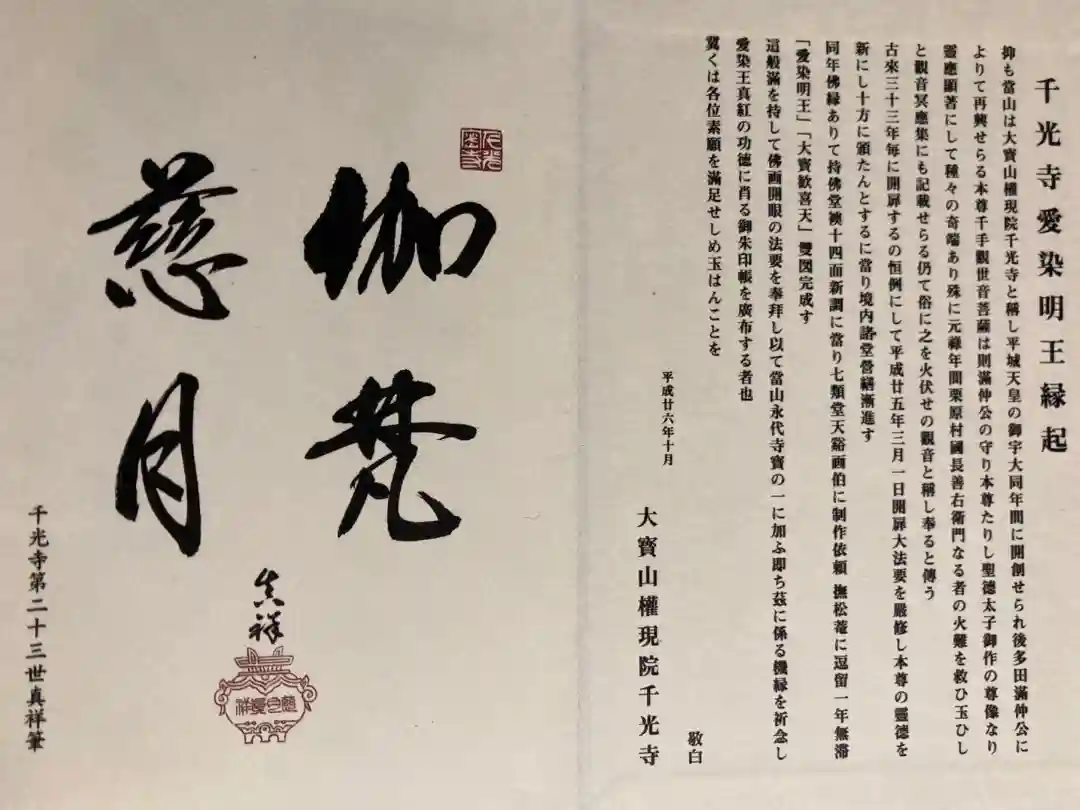 千光寺愛染明王縁起
抑も當山は大寶山權現院千光寺と稱し平城天皇の御宇大同年間に開創せられ後多田滿仲公に
よりて再興せらる本尊千手觀世音菩薩は則滿仲公の守り本尊たりし聖德太子御作の尊像なり
靈應顯著にして種々の奇端あり殊に元祿年間栗原村國長善右衛門なる者の火難を救ひ玉ひし
と觀音冥應集にも記載せらる仍て俗に之を火伏せの觀音と稱し奉ると傳う
古來三十三年每に開扉するの恒例にして平成廿五年三月一日開扉大法要を嚴修し本尊の靈德を
新にし十方に頒たんとするに當り境內諸堂營繕漸進す
同年佛縁ありて持佛堂襖十四面新調に當り七類堂天谿画伯に制作依頼 撫松菴に逗留一年無滯
「愛染明王」「大寶歓喜天」雙図完成す
這般滿を持して佛画開眼の法要を奉拜し以て當山永代寺寶の一に加ふ即ち茲に係る機縁を祈念し
愛染王真紅の功德に肖る御朱印帳を廣布する者也
冀くは各位素願を滿足せしめ玉はんことを
平成廿六年十月
大寶山權現院千光寺
敬白
伽梵
慈月
真祥
千光寺第二十三世真祥筆